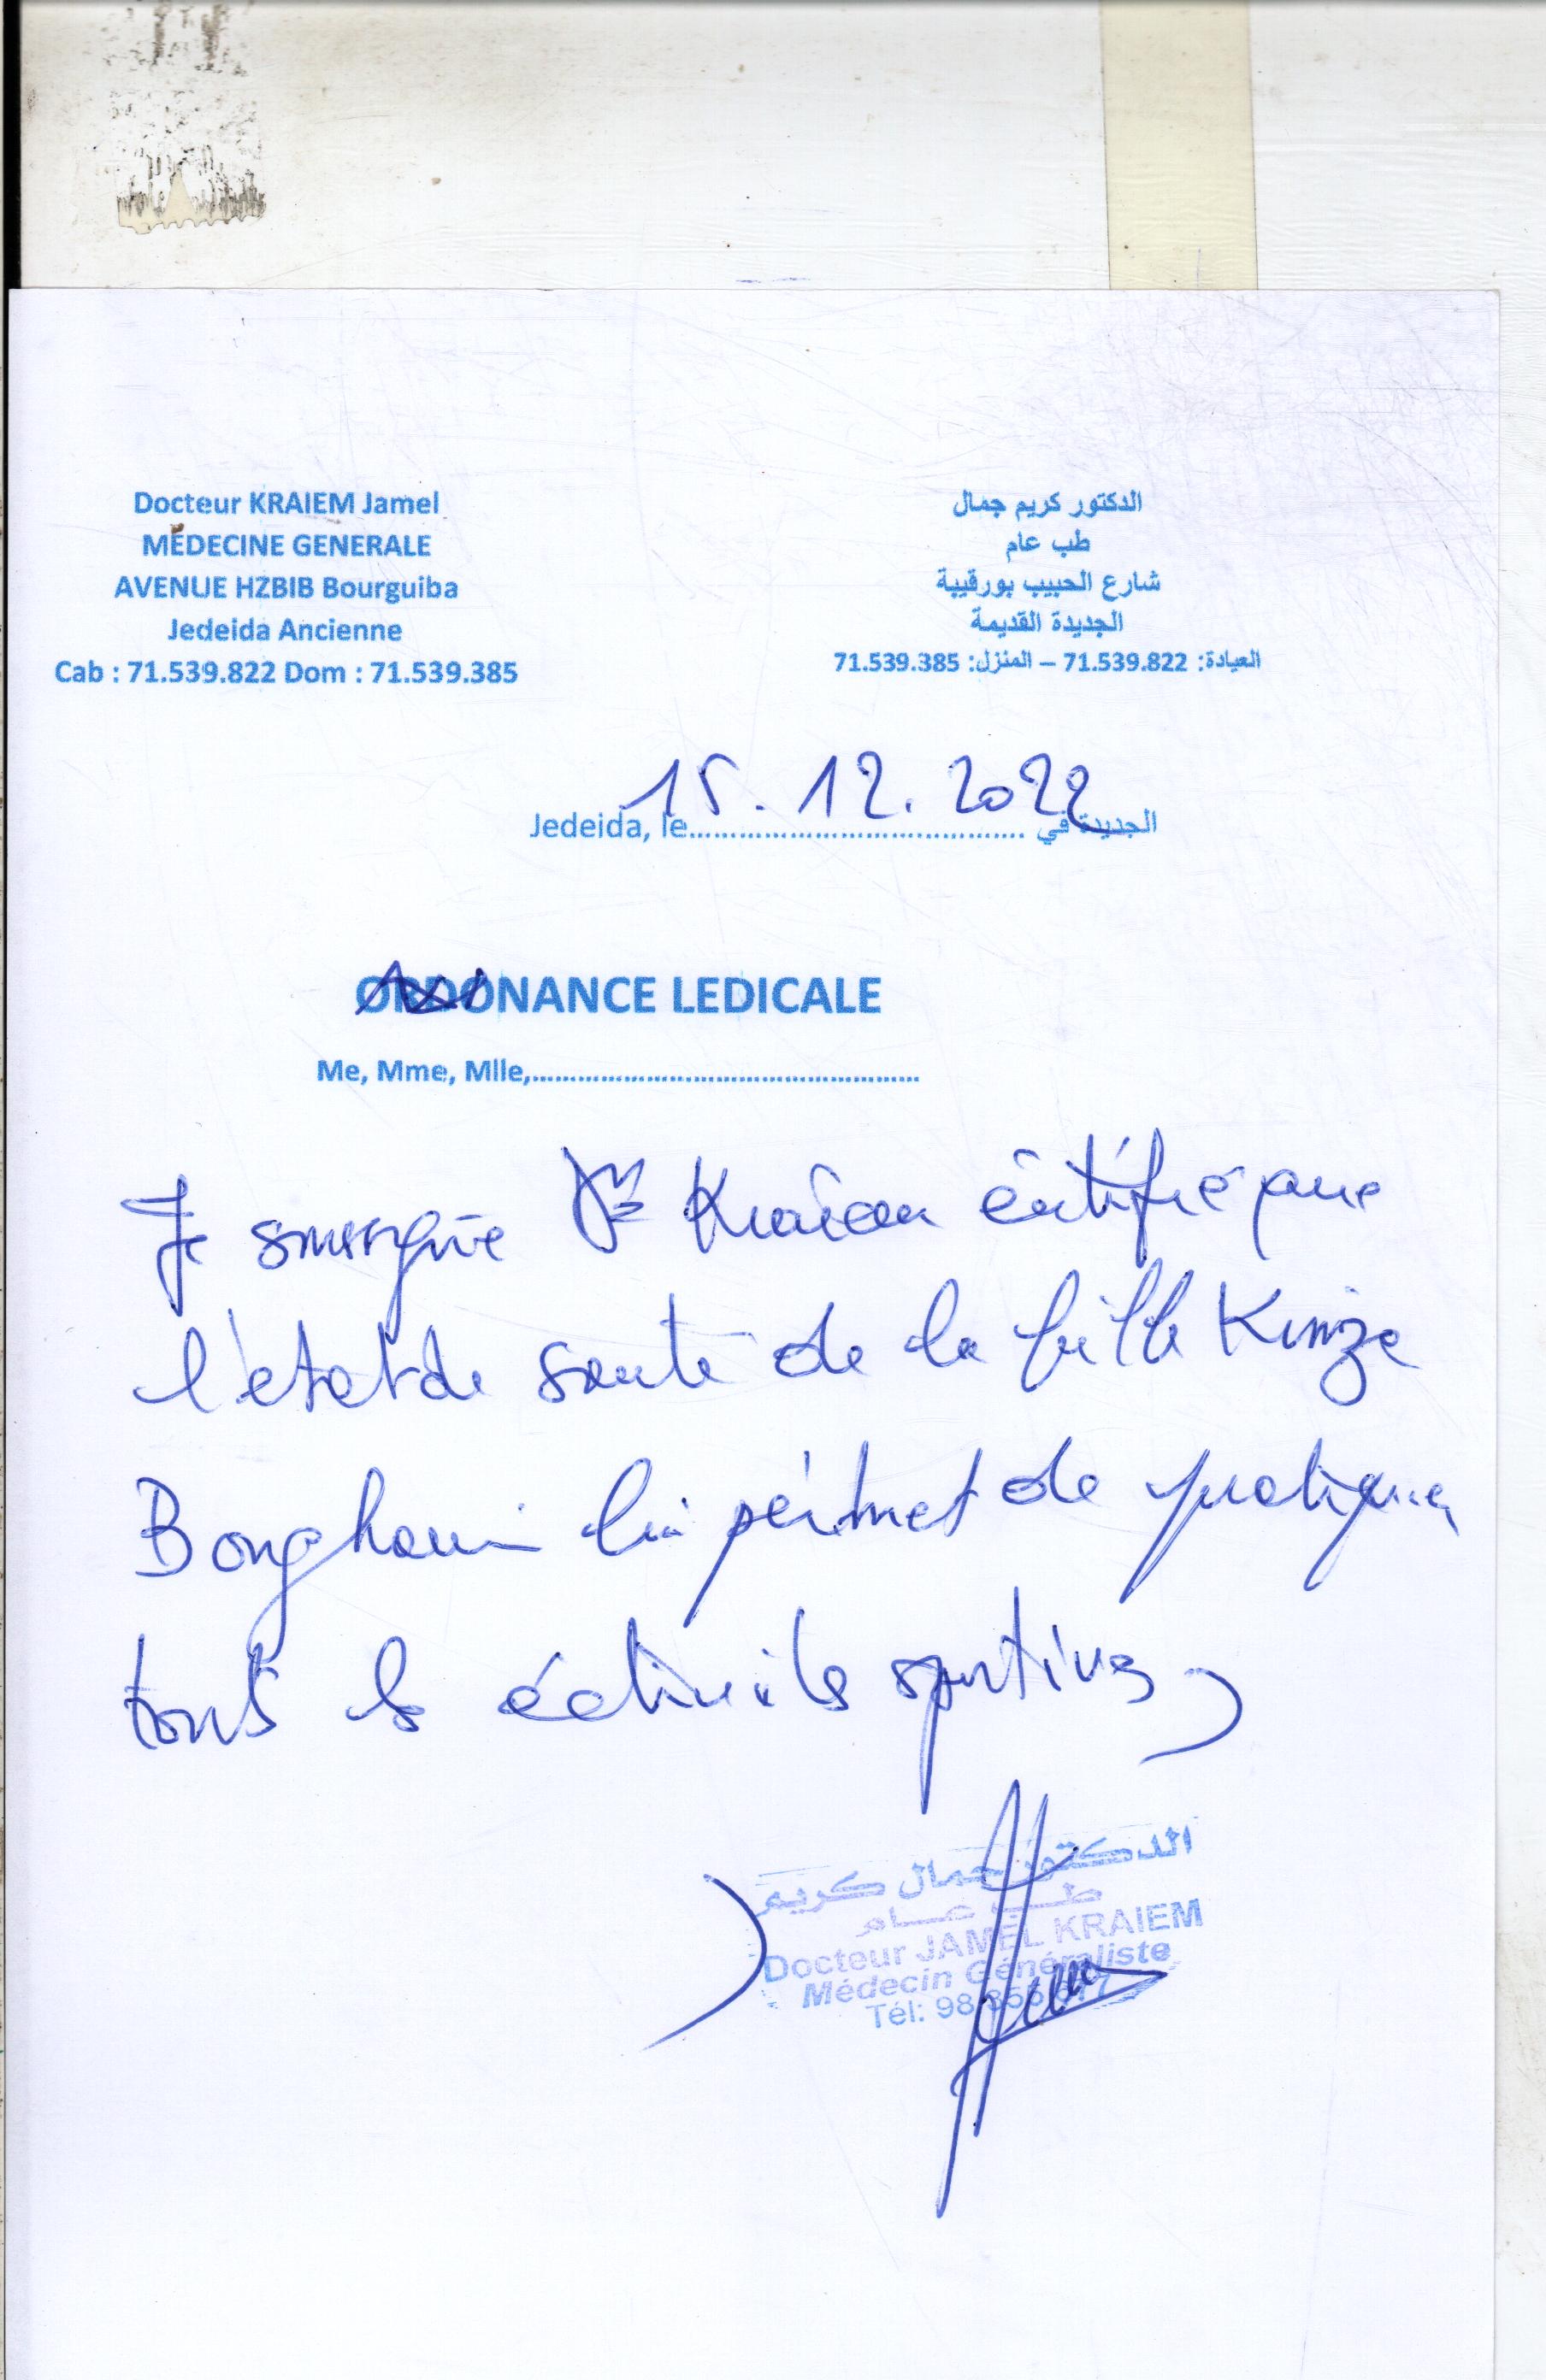 Docteur KRAIEM Jamel
MÉDECINE GENERALE
AVENUE HZBIB Bourguiba
Jedeida Ancienne
Cab : 71.539.822 Dom : 71.539.385
الدكتور كريم جمال
طب عام
شارع الحبيب بورقيبة
الجديدة القديمة
العيادة: 71.539.822 – المنزل: 71.539.385
15.12.2022
Jedeida, le.................................... الجديدة في
ORDONANCE LEDICALE
Me, Mme, Mlle,....................................................
Je soussigné Dr Kraiem certifie que
l'état de santé de la fille Kinza
Boughanmi lui permet de pratiquer
touts les activités sportives
الدكتور جمال كريم
طب عام
Docteur JAMEL KRAIEM
Médecin Généraliste
Tél: 98